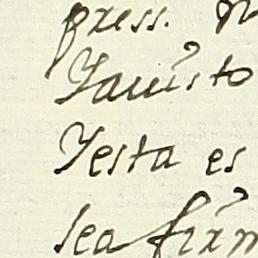 press.
Yauisto
Yesta es
sea firm